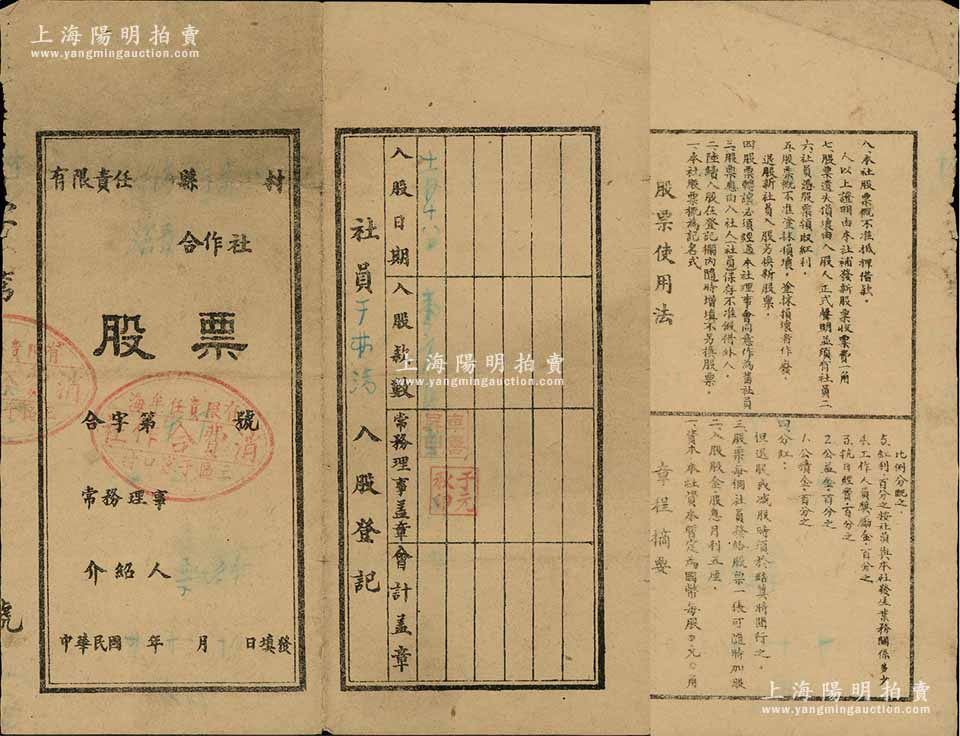 上海陽明拍賣
www.yangmingauction.com
有限責任 縣 村
合作社
股票
合字第 號
常務理事
介紹人
中華民國 年 月 日填發
號
上海陽明拍賣
www.yangmingauction.com
社員于 入股登記
入股日期
入股款數
常務理事蓋章
會計蓋章
于元
秋印
股票使用法
一.本社股票概為記名式.
二.陸續入股在登記欄內隨時增填不另換股票.
三.股票應由入社人(社員)保存不准假借外人.
四.股票轉讓必須經過本社理事會同意作為舊社員
退股新社員入股另換新股票.
五.股票概不准塗抹損壞.塗抹損壞者作廢.
六.社員憑股票領取紅利.
七.股票遺失損壞由入股人正式聲明並須有社員二
人以上證明由本社補發新股票收票費一角
八.本社股票概不准抵押借款.
章程摘要
一.資本.本社資本暫定為國幣每股 元 角
二.入股股金.股息月利五厘.
三.股票每個社員發給股票一張可隨時加股
但退股或减股時須於結算時間行之.
四.分紅:
1.公積金:百分之
2.公益金百分之
3.抗日經費:百分之
4.工作人員獎勵金.百分之
5.紅利:百分之按社員與本社發生業務關係多少
比例分配之.
上海陽明拍賣
www.yangmingauction.com